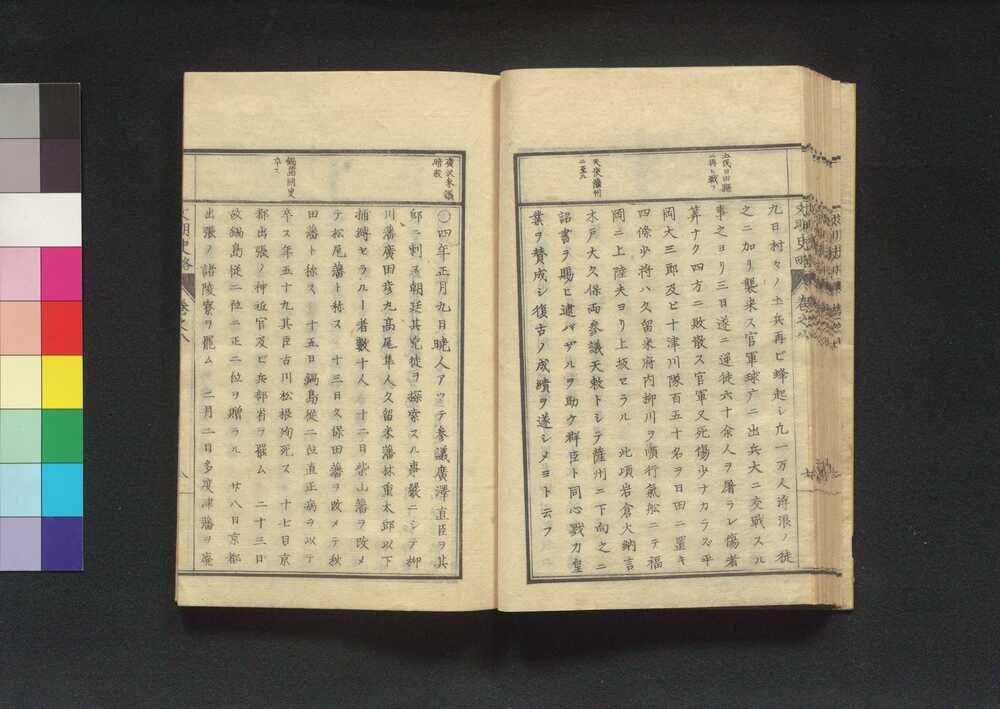 文明史略 卷之八
九日村々ノ土兵再ビ蜂起シ九一万人浮浪ノ徒
之ニ加リ襲来ス官軍球广ニ出兵大ニ交戦スル
事之ヨリ三日遂ニ逆徒六十余人ヲ屠ラレ傷者
算ナク四方ニ敗散ス官軍又死傷少ナカラズ平
岡大三郎及ヒ十津川隊百五十名ヲ日田ニ置キ
四條少将ハ久留米府内柳川ヲ順行氣船ニテ福
岡ニ上陸夫ヨリ上坂セラル 此頃岩倉大納言
木戸大久保両参議天敕トシテ薩州ニ下向之ニ
詔書ヲ賜ヒ逮バザルヲ助ケ群臣ト同心戮力皇
業ヲ賛成シ復古ノ成績ヲ遂シメヨト云フ
土民日田縣
ニ再ヒ戰フ
天使薩州
ニ至ル
〇四年正月九日暁人アツテ参議廣澤直臣ヲ其
邸ニ刺ス朝廷其兇徒ヲ探索スル事嚴ニシテ柳
川藩廣田彦九高尾隼人久留米藩林重太郎以下
捕縛セラルヽ者數十人 十二日柴山藩ヲ改メ
テ松尾藩ト称ス 十三日久保田藩ヲ改メテ秋
田藩ト称ス 十五日鍋島従二位直正病ヲ以テ
卒ス年五十九其臣古川松根殉死ス 十七日京
都出張ノ神祗官及ビ兵部省ヲ罷ム 二十三日
故鍋島従二位ニ正二位ヲ贈ラル 廿八日京都
出張ノ諸陵寮ヲ罷ム 二月二日多度津藩ヲ廢
文明史略 卷之八 八
廣沢参議
暗殺
鍋嶌閑叟
卒ス